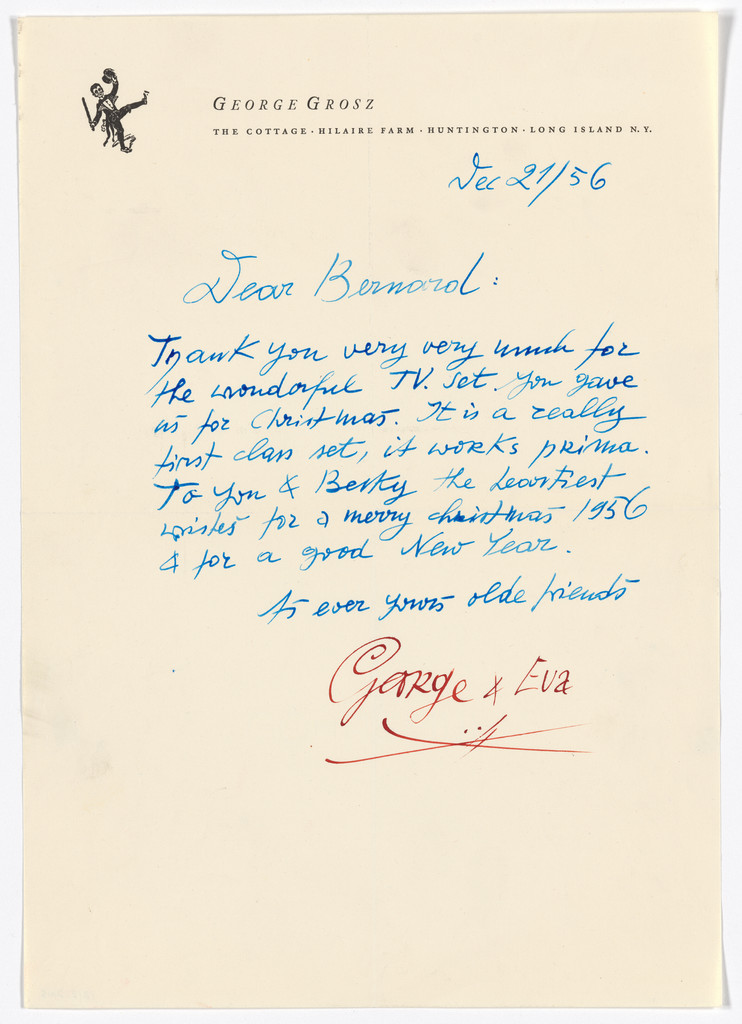 GEORGE GROSZ
THE COTTAGE · HILAIRE FARM · HUNTINGTON · LONG ISLAND N.Y.
Dec 21/56
Dear Bernard:
Thank you very very much for
the wonderful TV. set. You gave
us for Christmas. It is a really
first class set, it works prima.
To you & Becky the heartiest
wishes for a merry christmas 1956
& for a good New Year.
As ever yours olde friends
George & Eva